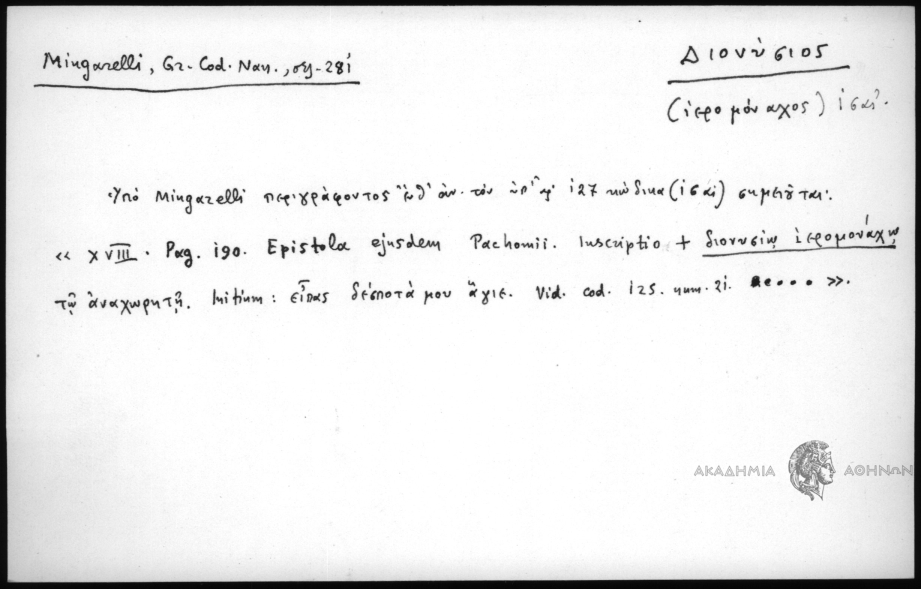 Mingarelli, Gr. Cod. Nan., σελ. 281
Διονύσιος
(ἱερομόναχος) ιςαι.
Ὑπὸ Mingarelli περιγράφοντος τὸν ὑπ' ἀρ. 127 κώδικα (ιςαι) σημειοῦται:
« XVIII. Pag. 190. Epistola ejusdem Pachomii. Inscriptio + διονυσίῳ ἱερομονάχῳ
τῷ ἀναχωρητῇ. Initium: εἶπας δέσποτά μου ἅγιε. Vid. cod. 125. num. 21. .... ».
ΑΚΑΔΗΜΙΑ ΑΘΗΝΩΝ